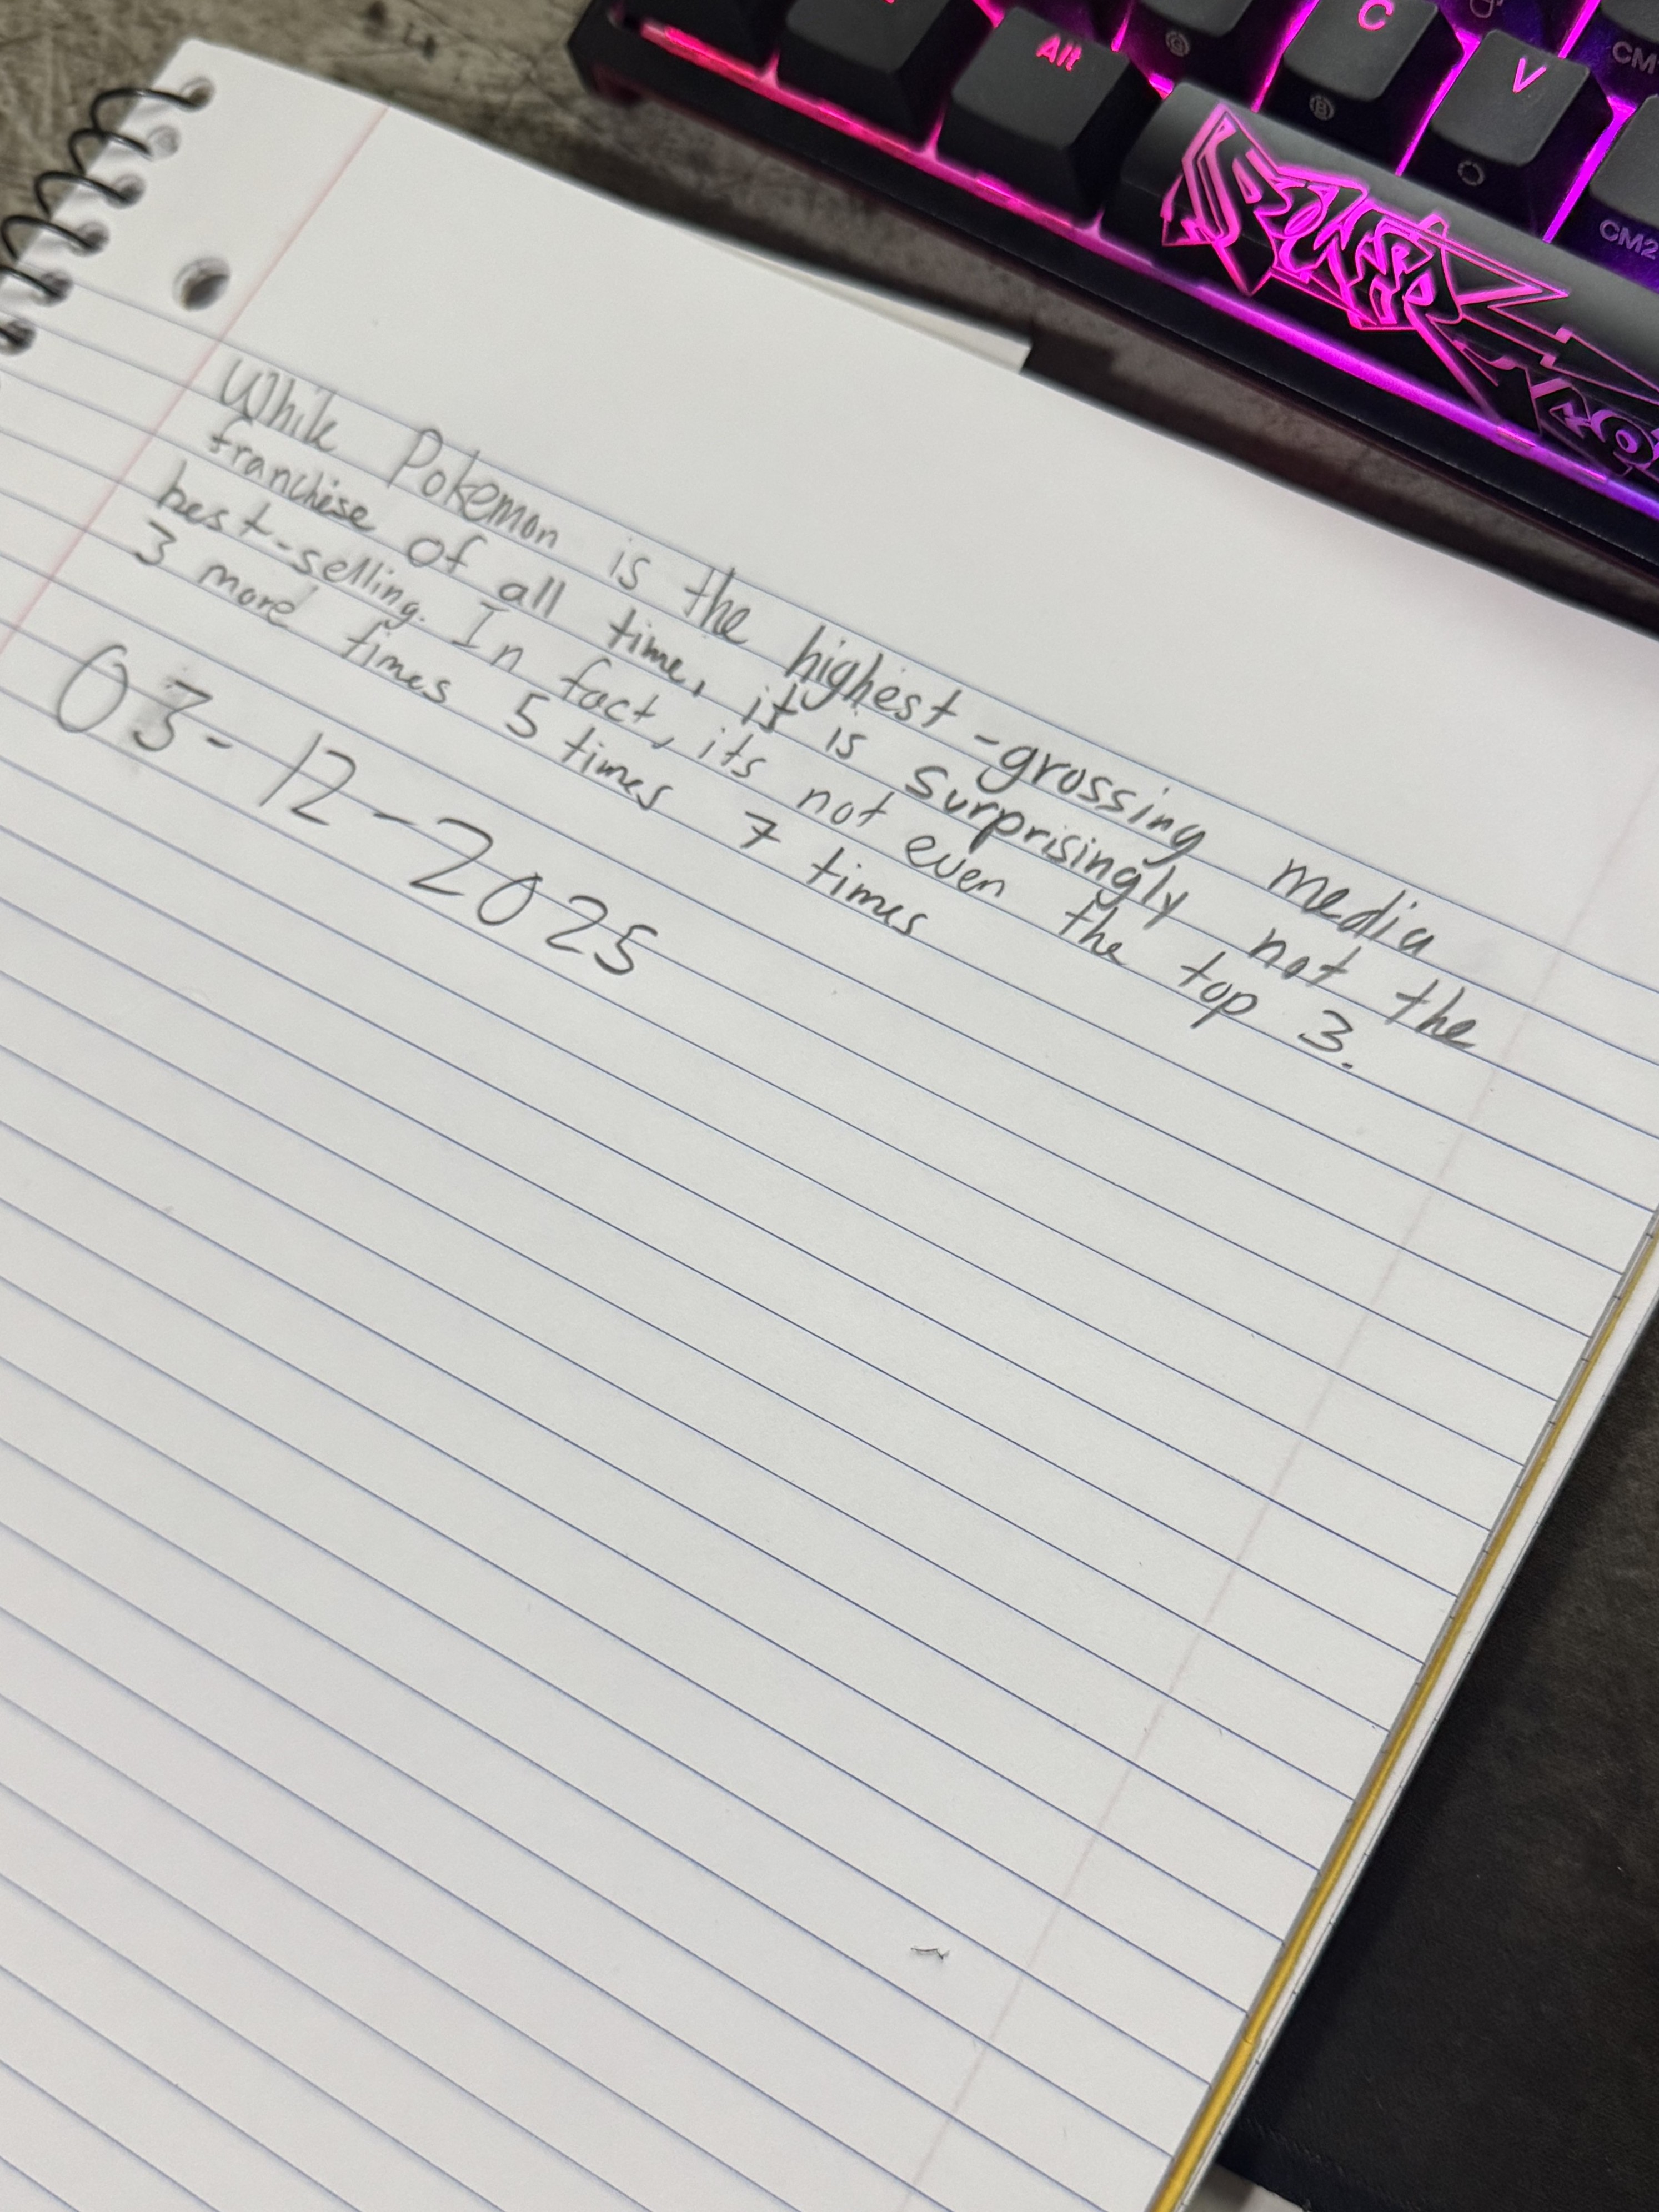 Alt
C
V
CM
CM2
POWER
While Pokemon is the highest-grossing media
franchise of all time, it is surprisingly not the
best-selling. In fact, its not even the top 3.
3 more times 5 times 7 times
03-12-2025